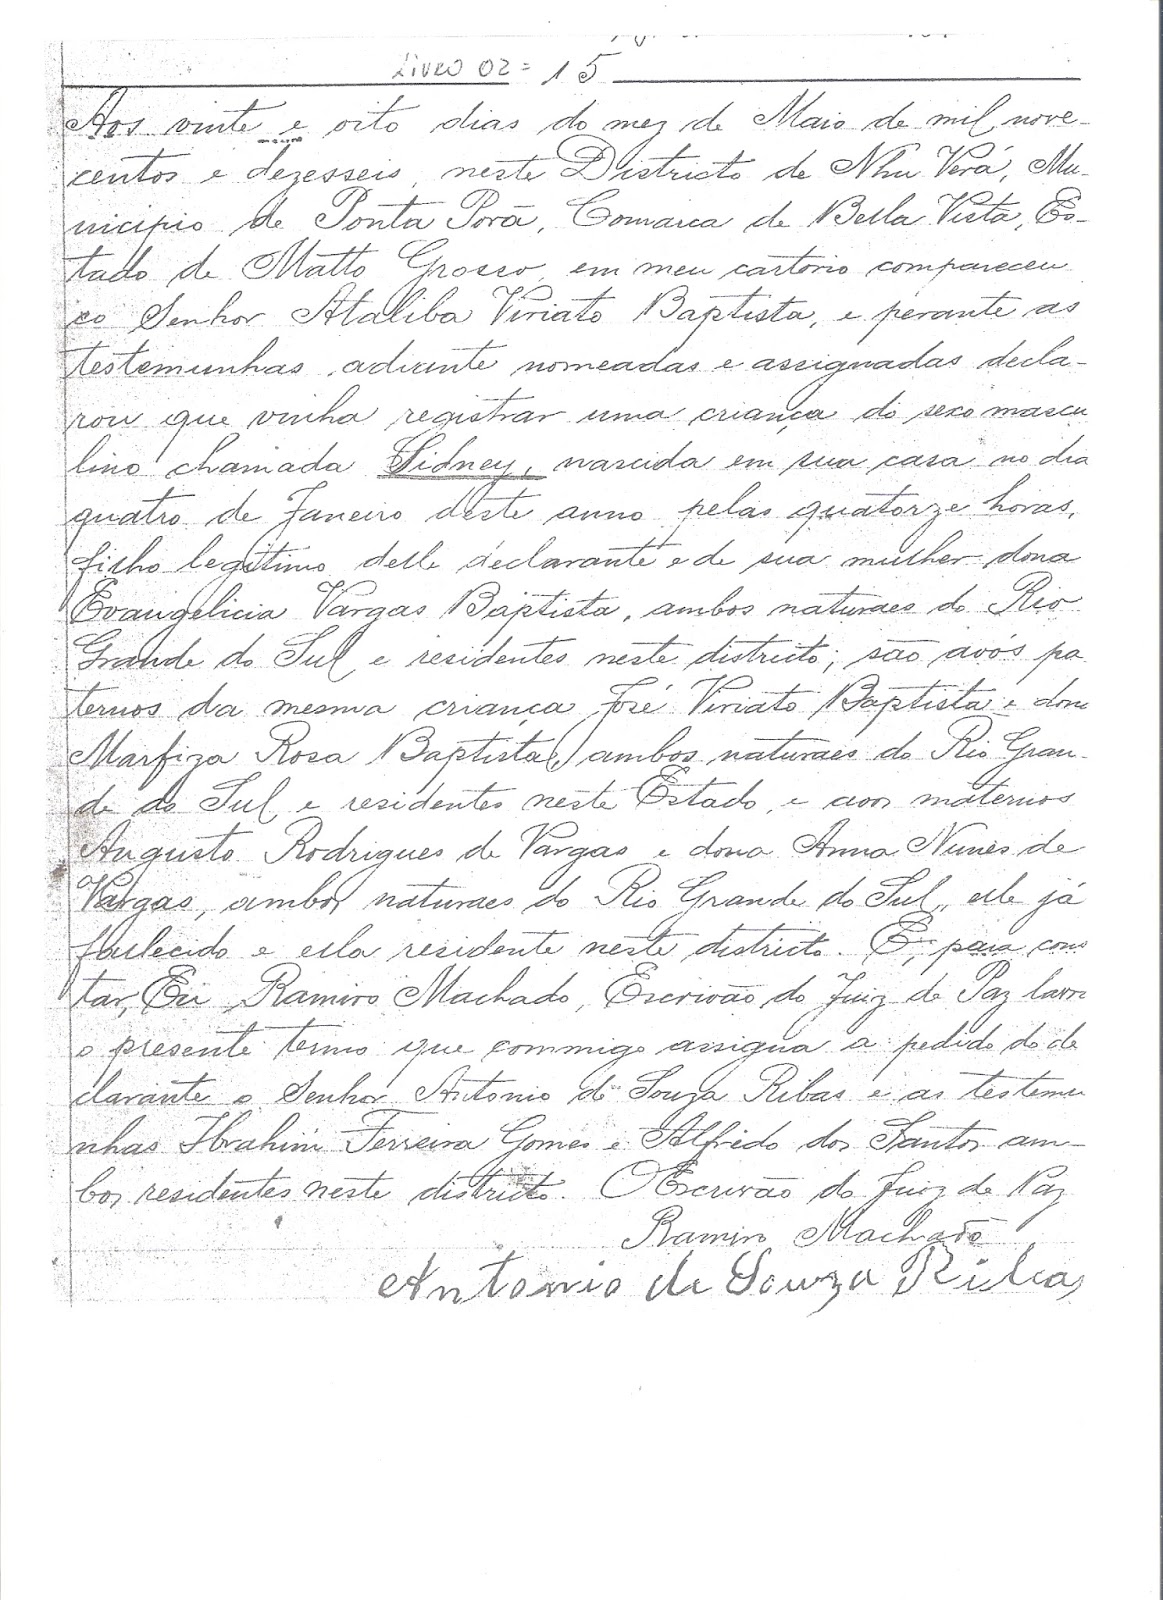 Livro 02 = 15
Aos vinte e oito dias do mez de Maio de mil nove-
centos e dezesseis, neste Districto de Nhu Verá, Mu-
nicipio de Ponta Porã, Comarca de Bella Vista, Es-
tado de Matto Grosso, em meu cartorio compareceu
o Senhor Ataliba Viriato Baptista, e perante as
testemunhas adiante nomeadas e assignadas decla-
rou que vinha registrar uma criança do sexo mascu
lino chamada Sidney, nascida em sua casa no dia
quatro de Janeiro deste anno pelas quatorze horas,
filho legitimo delle declarante e de sua mulher dona
Evangelicia Vargas Baptista, ambos naturaes do Rio
Grande do Sul e residentes neste districto; são avós pa
ternos da mesma criança José Viriato Baptista e dona
Marfiza Rosa Baptista, ambos naturaes do Rio Gran-
de do Sul e residentes neste Estado, e avos maternos
Augusto Rodrigues de Vargas e dona Anna Nunes de
Vargas, ambos naturaes do Rio Grande do Sul, elle já
fallecido e ella residente neste districto. E, para cons
tar, Eu Ramiro Machado, Escrivão do Juiz de Paz lavrei
o presente termo que commigo assigna a pedido do de
clarante o Senhor Antonio de Souza Ribas e as testemu
nhas Ibrahim Ferreira Gomes e Alfredo dos Santos am-
bos residentes neste districto. O Escrivão do Juiz de Paz
Ramiro Machado
Antonio de Souza Ribas